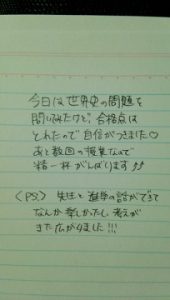 今日は世界史の問題を
解いてみたけど、合格点は
とれたので自信がつきました♡
あと数回の授業なので
精一杯がんばります♪♪
〈P.S.〉 先生と進学の話ができて
なんか楽しかったし、考えが
また広がりました!!!